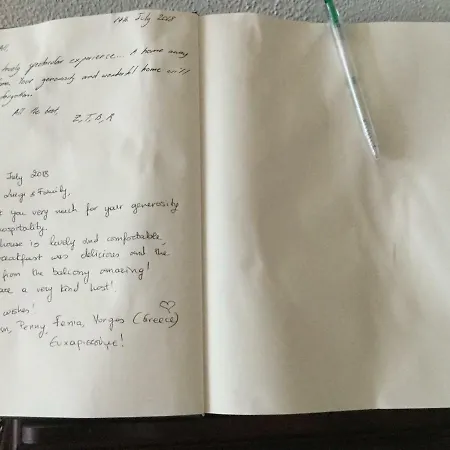 14th July 2018
lovely spectacular experience... A home away
Your generosity and wonderful home won't
All the best,
Z, T, B, R
July 2018
& Family,
you very much for your generosity
hospitality.
house is lovely and comfortable
breakfast was delicious and the
from the balcony amazing!
are a very kind host!
wishes!
Penny, Fenia, Yorgos (Greece)
Ευχαριστούμε!